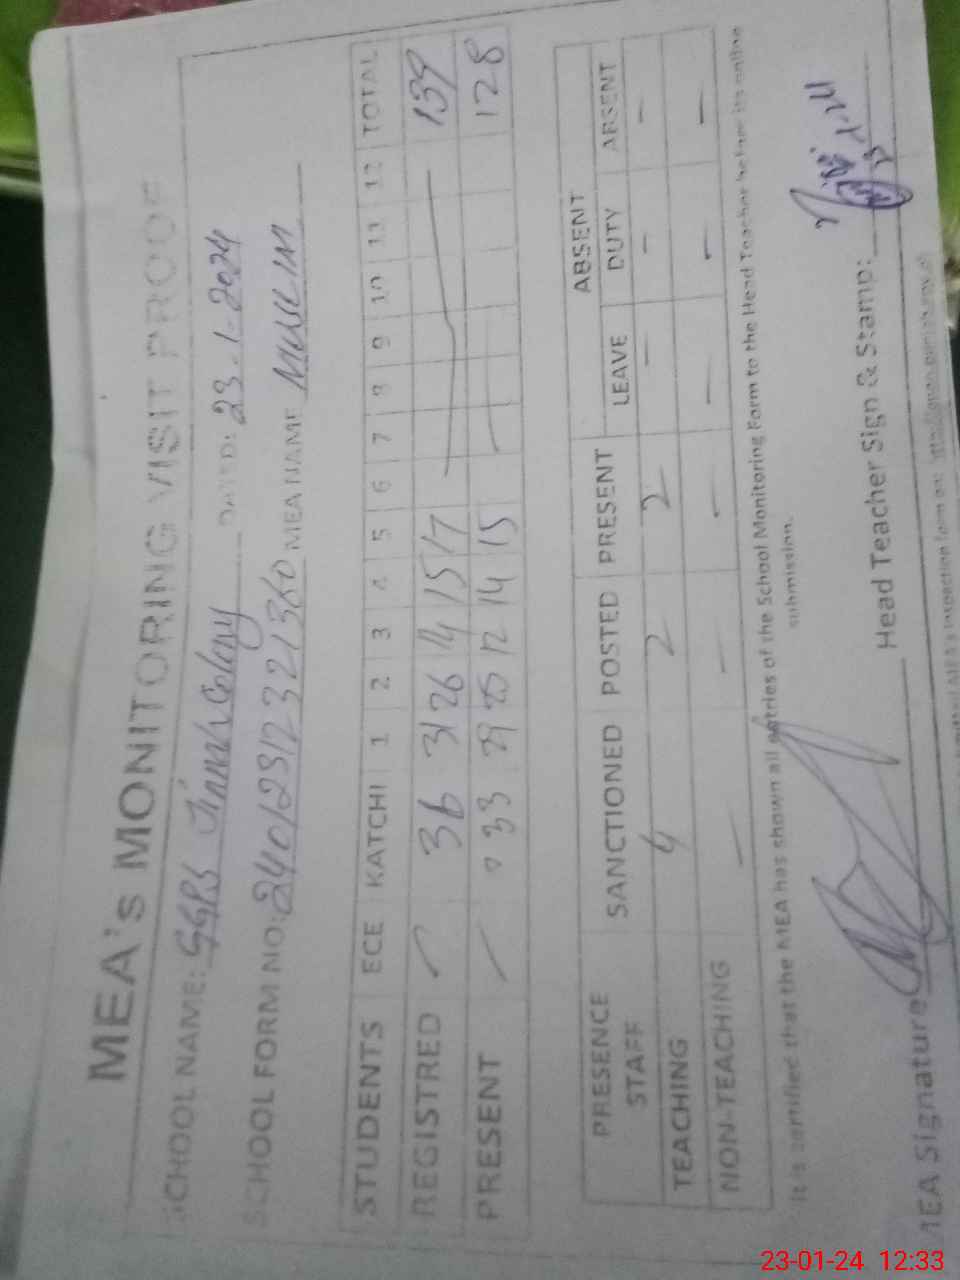 MEA's MONITORING VISIT PROOF
SCHOOL NAME: GGPS Jinnah Colony DATED: 23-1-2024
SCHOOL FORM NO: 240123123221360 MEA NAME
STUDENTS ECE KATCHI 1 2 3 4 5 6 7 8 9 10 11 12 TOTAL
REGISTRED 36 31 26 14 15 17 139
PRESENT 33 29 25 12 14 15 128
PRESENCE STAFF SANCTIONED POSTED PRESENT ABSENT
LEAVE DUTY ABSENT
TEACHING 4 2 2 - - -
NON-TEACHING - - - - - -
It is certified that the MEA has shown all entries of the School Monitoring Form to the Head Teacher before its online
submission.
MEA Signature Head Teacher Sign & Stamp:
MEA's inspection form on:
23-01-24 12:33